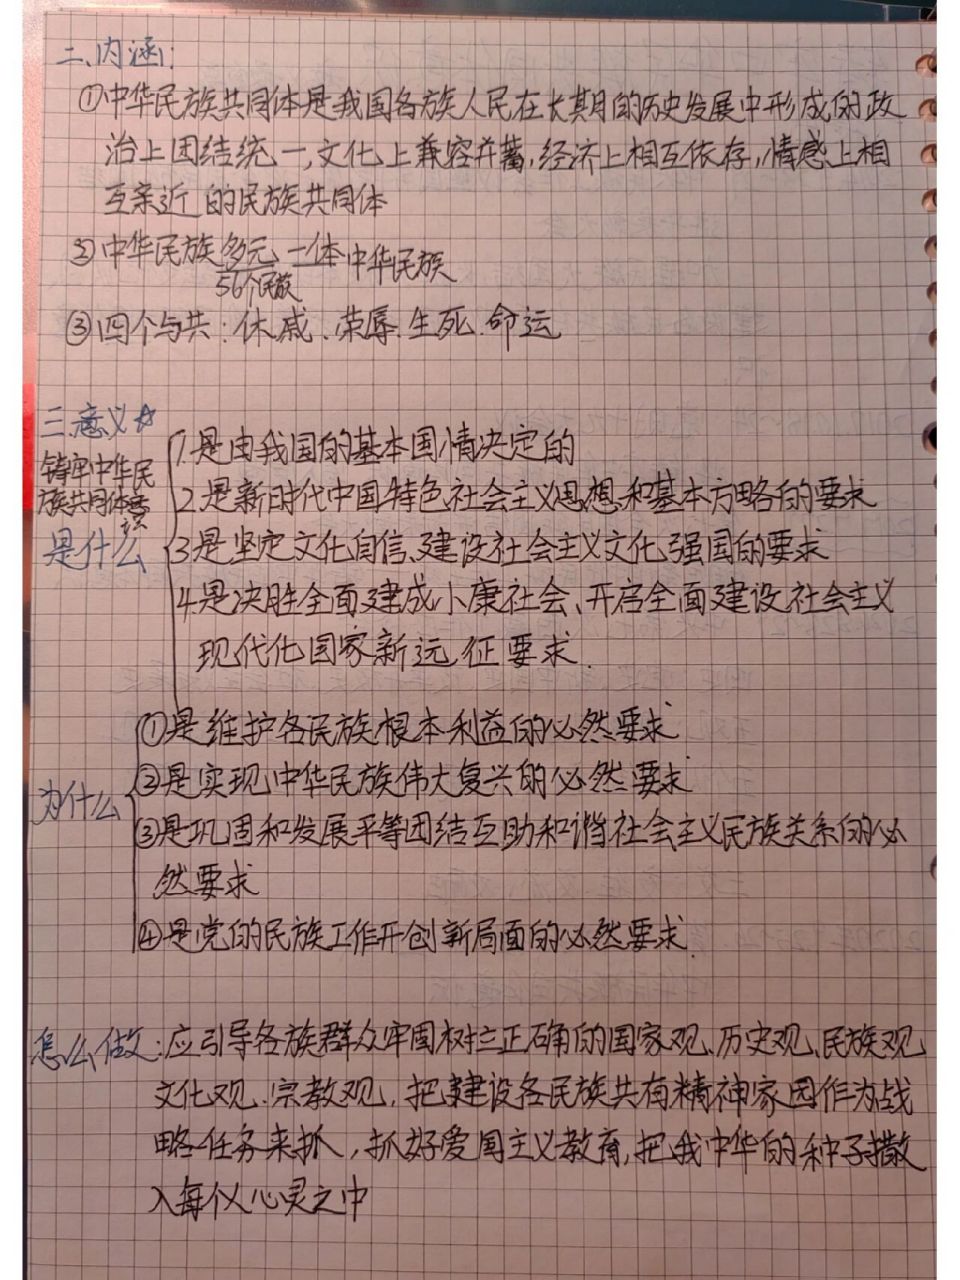 二.内涵:
①中华民族共同体是我国各族人民在长其月的历史发展中形成的政
治上团结统一,文化上兼容并蓄,经济上相互依存,情感上相
互亲近的民族共同体
②中华民族多元一体中华民族
56个民族
③四个与共:休戚、荣辱、生死、命运
三.意义☆
铸牢中华民
族共同体意
识
是什么
1.是由我国的基本国情决定的
2.是新时代中国特色社会主义思想和基本方略的要求
3.是坚定文化自信、建设社会主义文化强国的要求
4.是决胜全面建成小康社会、开启全面建设社会主义
现代化国家新远征要求.
为什么
①是维护各民族根本利益的必然要求
②是实现中华民族伟大复兴的必然要求
③是巩固和发展平等团结互助和谐社会主义民族关系的必
然要求
④是党的民族工作开创新局面的必然要求.
怎么做:应引导各族群众牢固树立正确的国家观、历史观、民族观
文化观、宗教观,把建设各民族共有精神家园作为战
略任务来抓,抓好爱国主义教育,把我中华的种子撒
入每个人心灵之中